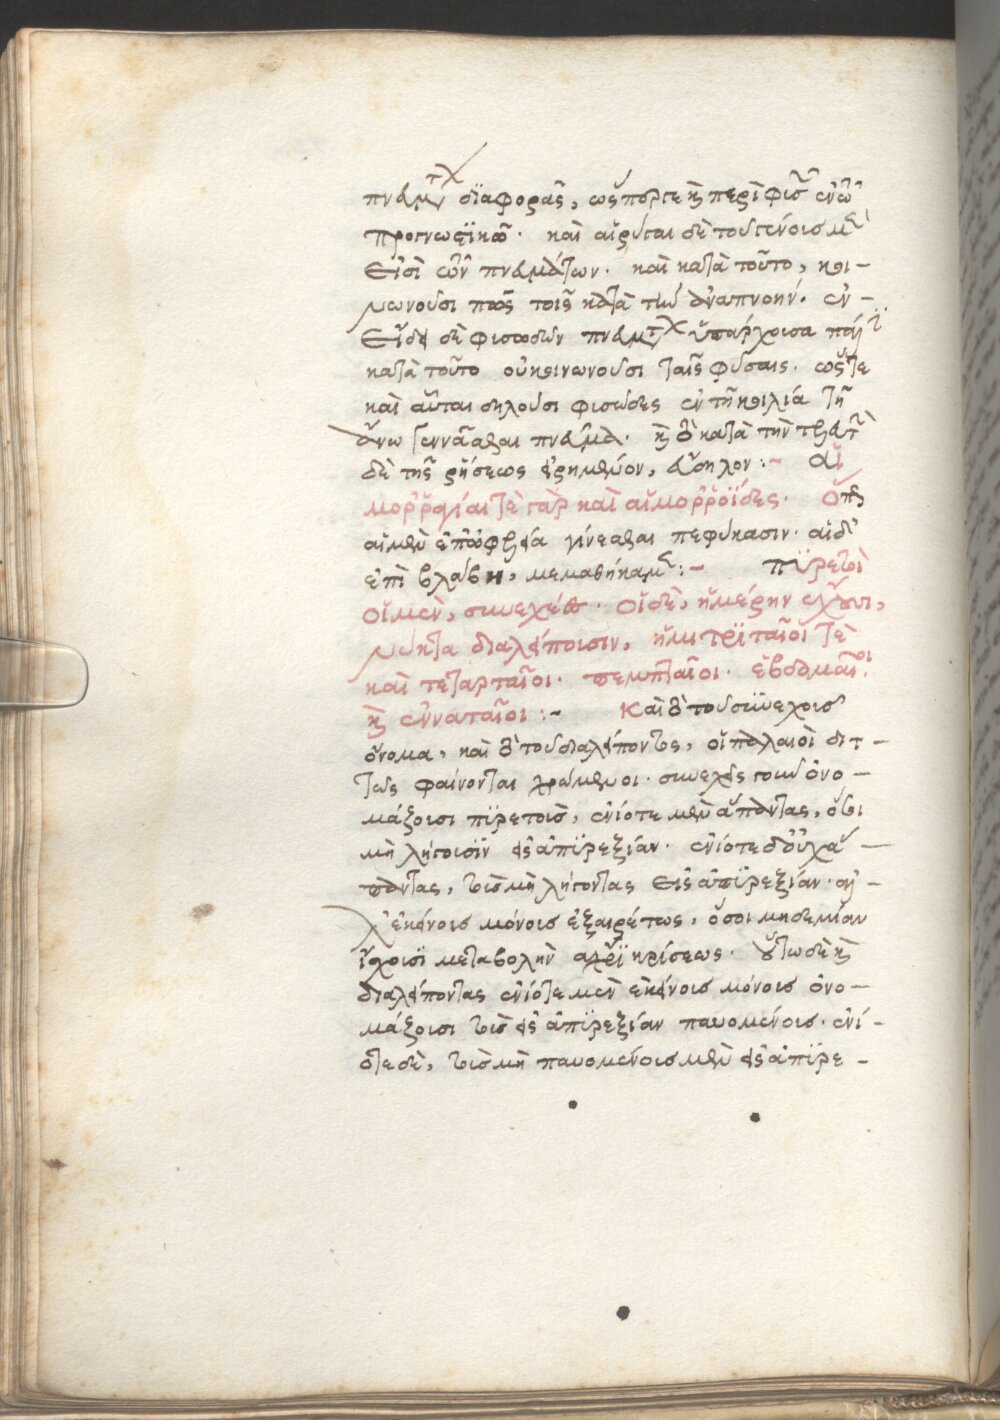 διαφορᾶς, ὥσπερ τε καὶ περὶ
προγνωστικῶ. καὶ εἴρηται δὲ
Εἰσὶ πνευμάτων. καὶ κατὰ τοῦτο, κοι-
νωνοῦσί πως τοῖς κατὰ τὴν ἀναπνοήν. ἐν-
δὲ φυσωδῶν ὑπάρχουσα
κατὰ τοῦτο οὐ κοινωνοῦσι ταῖς φύσαις. ὥστε
καὶ αὗται δηλοῦσι φυσῶδες ἐν τῇ κοιλία τῇ
ἄνω γεννᾶσθαι πνεῦμα. καὶ τὸ κατὰ τὴν
δὲ τῆς ῥήσεως εἰρημένον, εὔδηλον :- Αἱ
μορῥαγίαι τὲ γὰρ καὶ αἱμοῤῥοΐδες. Ὅπως
αἱ μὲν γίνεσθαι πεφύκασιν. αἱ δ'
ἐπὶ βλάβη, μεμαθήκαμεν :- Πυρετοὶ
οἱ μὲν, συνεχέες. οἱ δὲ, ἡμέρην ἔχουσι,
νύκτα διαλείπουσιν, ἡμιτριταῖοι τὲ
καὶ τεταρταῖοι. πεμπταῖοι. ἑβδομαῖοι.
καὶ ἐνναταῖοι :- Καὶ τὸ τοῦ συνεχοῦς
ὄνομα, καὶ τὸ τοῦ διαλείποντος, οἱ παλαιοὶ διτ-
τῶς φαίνονται χρώμενοι. συνεχεῖς γοῦν ὀνο-
μάζουσι πυρετοὺς, ἐνίοτε μὲν ἅπαντας, ὅσοι
μὴ λήγουσιν εἰς ἀπυρεξίαν. ἐνίοτε δ' οὐχ ἅ-
παντας, τοὺς μὴ λήγοντας εἰς ἀπυρεξίαν. ἀλ-
λ' ἐκείνους μόνους ἐξαιρέτως, ὅσοι μηδεμίαν
ἴσχουσι μεταβολὴν ἄχρι κρίσεως. οὕτω δὲ καὶ
διαλείποντας ἐνίοτε μὲν ἐκείνους μόνους ὀνο-
μάζουσι τοὺς εἰς ἀπυρεξίαν παυομένους. ἐνί-
οτε δὲ, τοὺς μὴ παυομένους μὲν εἰς ἀπυρε-